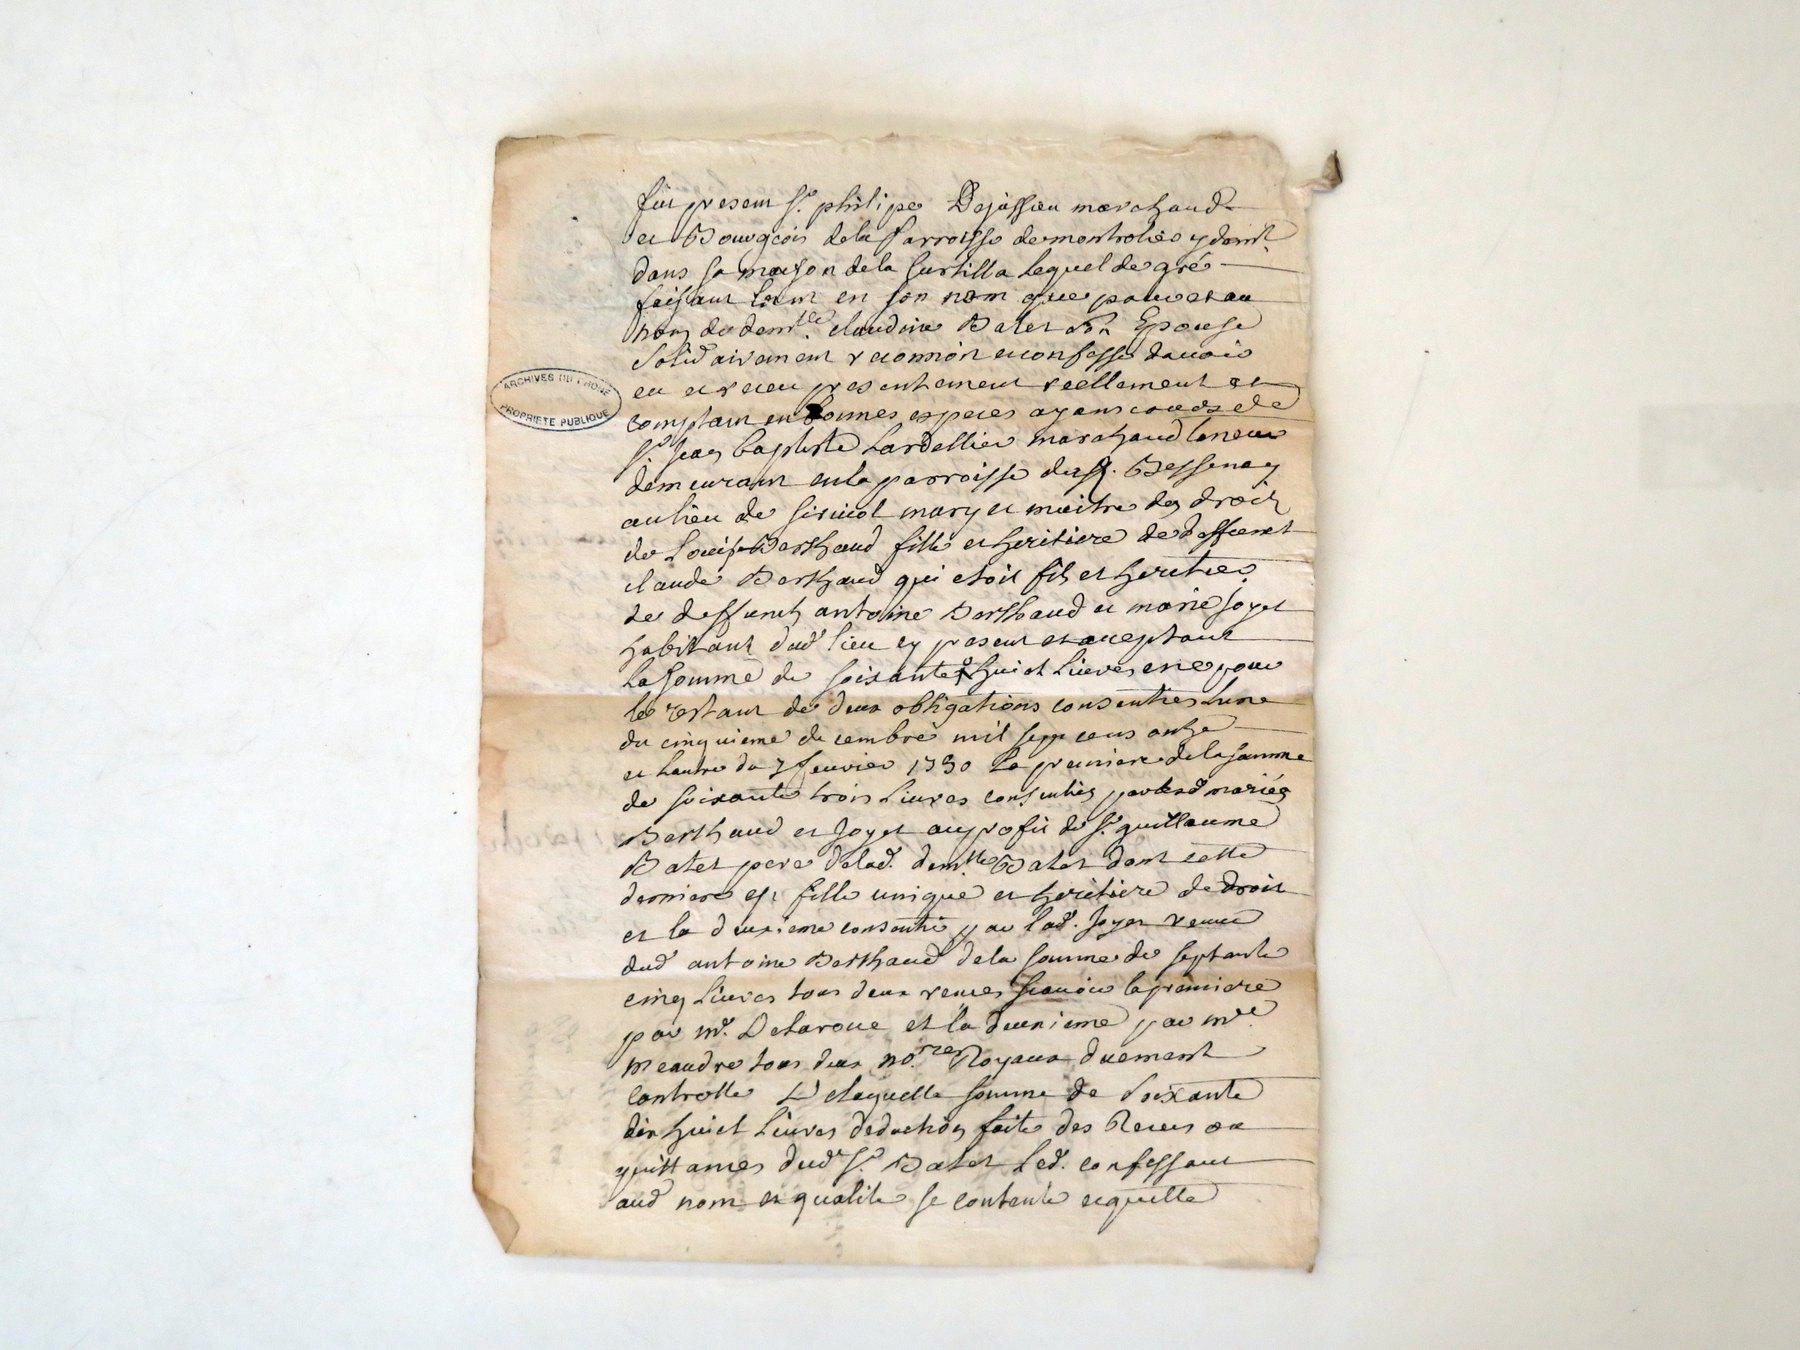 fut present Sr. philipe Dejussieu marchand
et Bourgeois de la Parroisse de montrotier y demt.
dans sa maison de la lequel de gré
faisant tant en son nom que pour et au
nom de demlle. claudine Balet son Epouse
Solidairement reconnoit et confesse d'avoir
eu et receu presentement reellement et
comptant en bonnes especes ayant cours de
Sr. Jean baptiste Lardellier marchand taneur
demeurant en la parroisse de Bessenay
au lieu de mary et maitre des droits
de Louise Berthaud fille et heritiere de deffunct
claude Berthaud qui etoit fils et heritier
de deffuncts antoine Berthaud et marie Joyet
habitant dud. lieu cy present et acceptant
La somme de soixante huict Livres et ce pour
le restant de deux obligations consenties Lune
du cinquieme decembre mil sept cens onze
et Lautre du 7 fevrier 1730 La premiere de la somme
de soixante trois Livres consenties par lesd. mariés
Berthaud et Joyet au profit de Sr. guillaume
Balet pere de lad. demlle. Balet dont cette
derniere est fille unique et heritiere de droit
et la deuxieme consentie par lad. Joyet veuve
dud. antoine Berthaud de la somme de septante
cinq Livres tous deux receues scavoir la premiere
par me. Delaroue et la deuxieme par me.
meandre tous deux no.res Royaux duement
controlle De laquelle somme de soixante
dix huict Livres deduction faite des Receus ou
quittances dud. Sr. Balet Led. confessant
aud. nom et qualité se contente et quitte
ARCHIVES DU RHONE
PROPRIETE PUBLIQUE